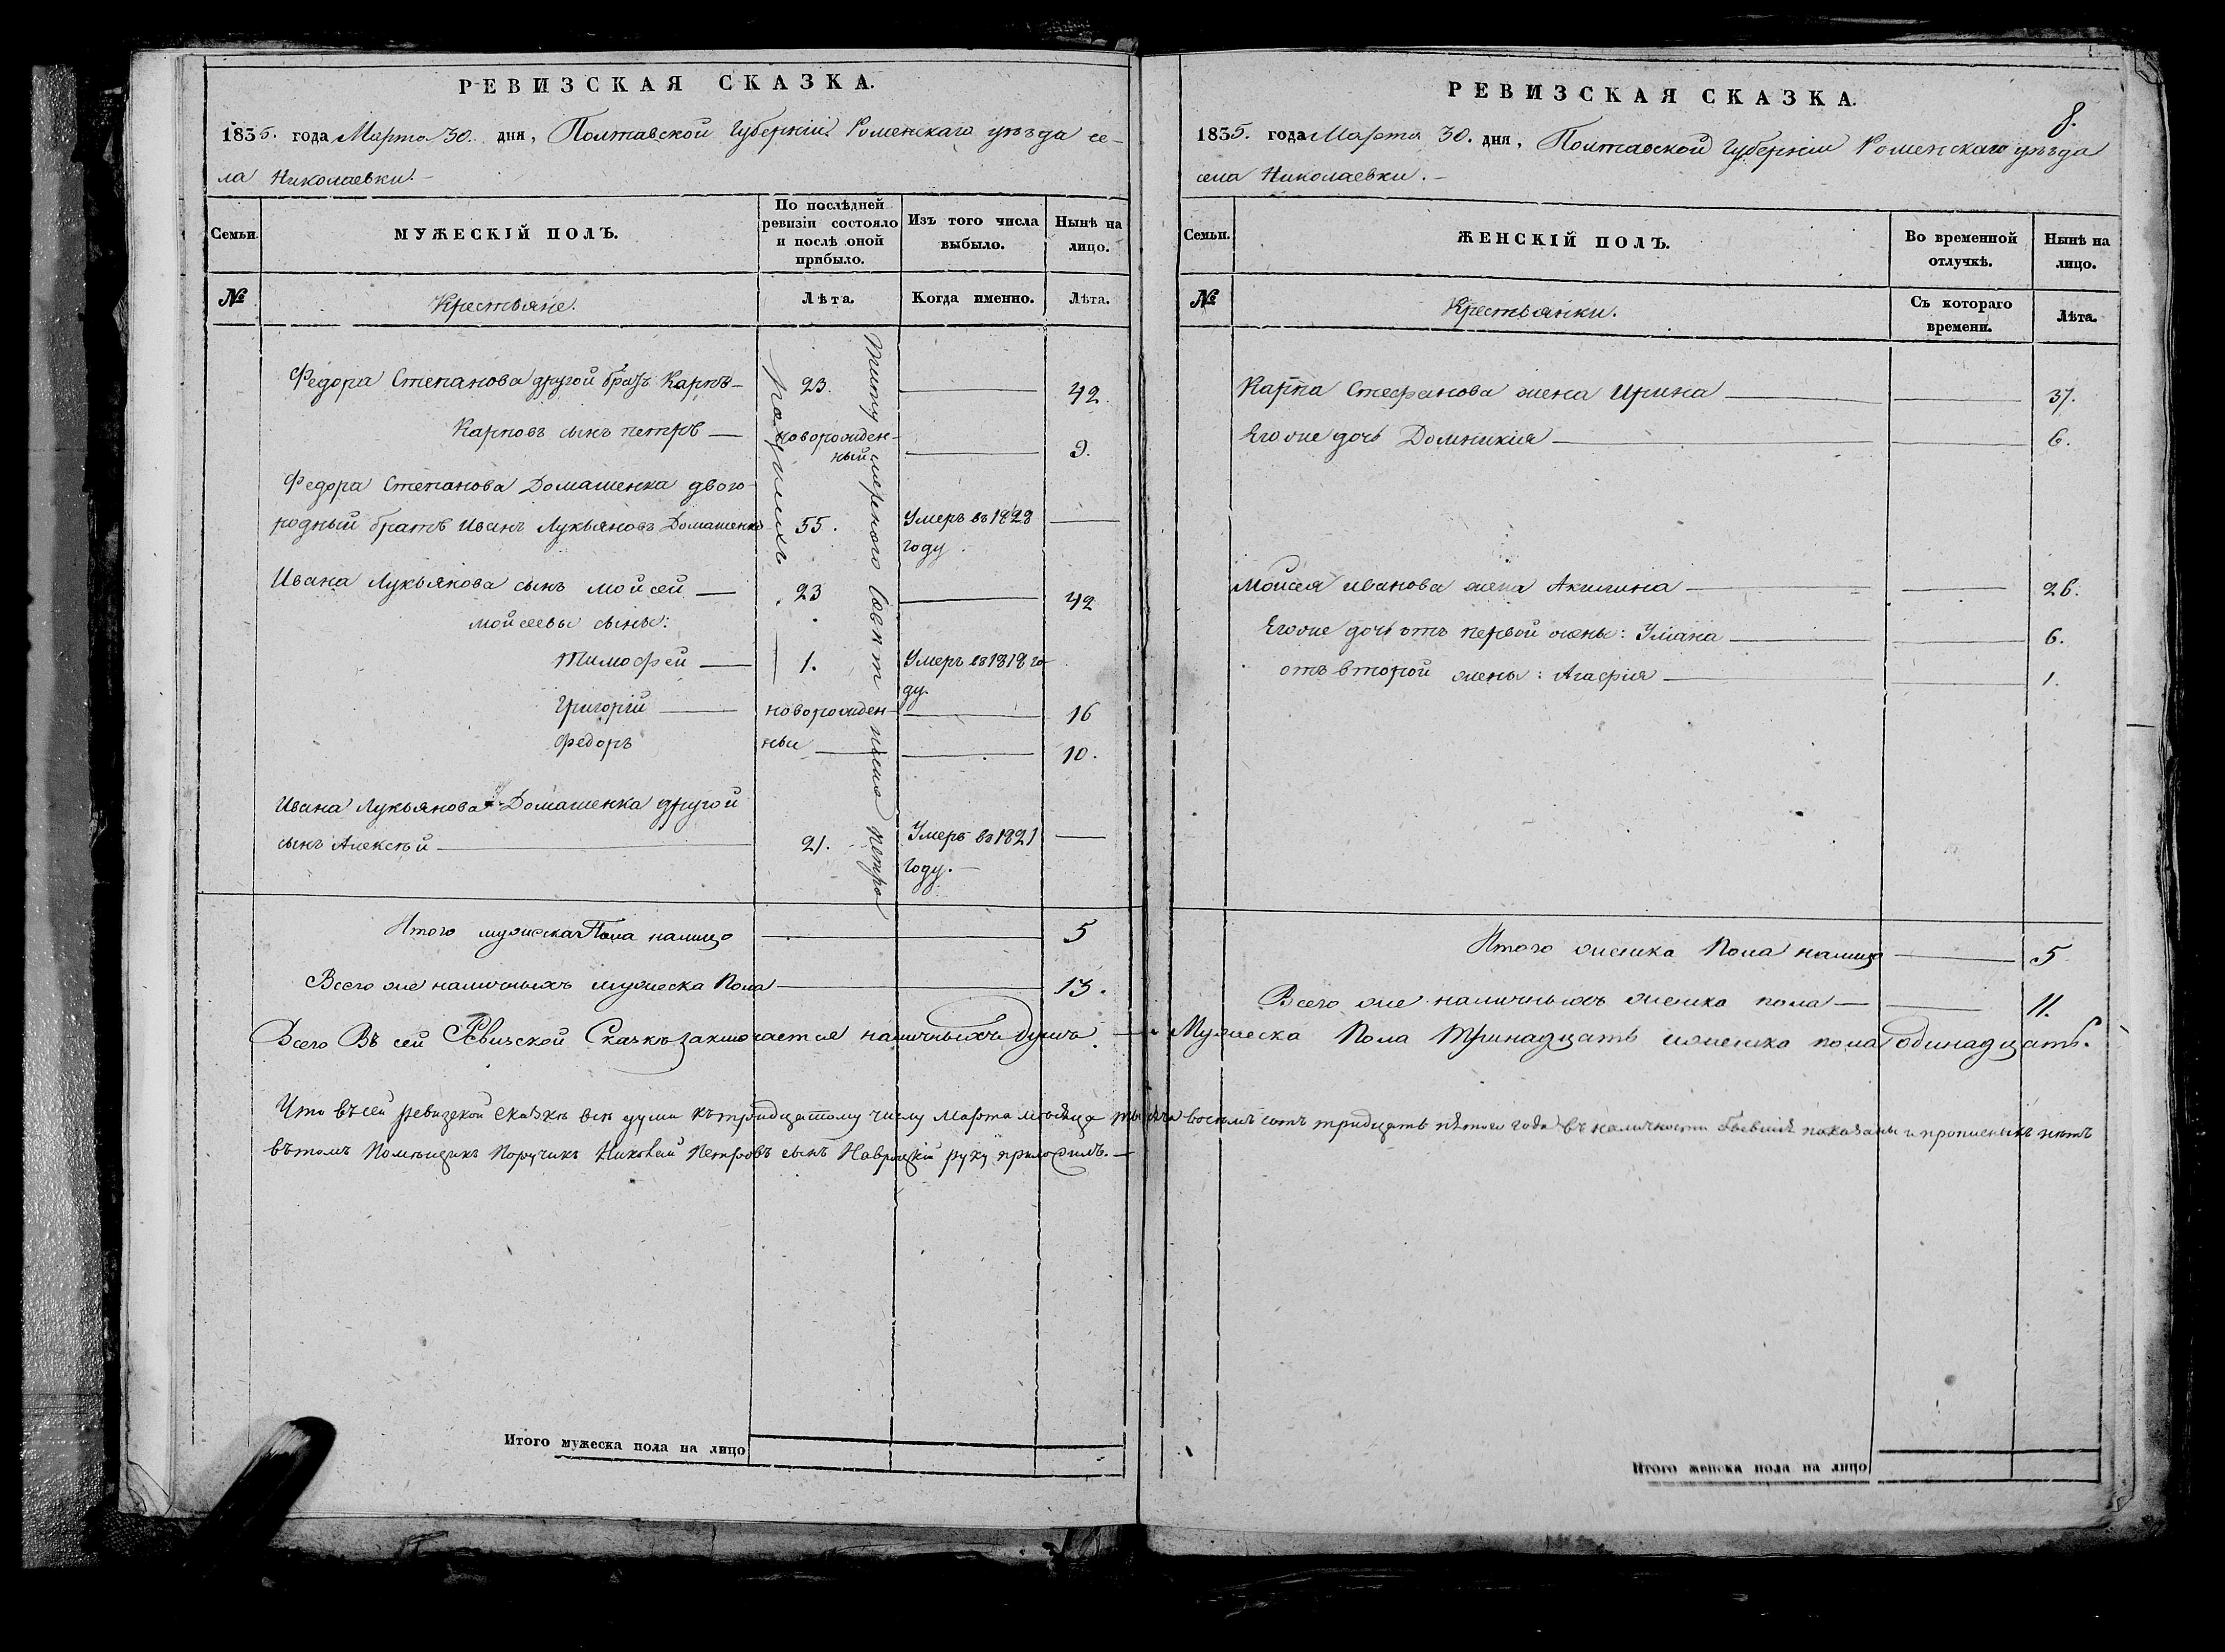 РЕВИЗСКАЯ СКАЗКА.
1835. года Марта 30. дня, Полтавской Губерніи Роменскаго уѣзда се-
ла Николаевки.
Семьи.
МУЖЕСКІЙ ПОЛЪ.
По послѣдней ревизіи состояло и послѣ оной прибыло.
Изъ того числа выбыло.
Нынѣ на лицо.
№
Крестьяне.
Лѣта.
Когда именно.
Лѣта.
Федора Степанова другой братъ Карпъ 23. 42.
Карповъ сынъ петръ новорожден-
ный 9.
Федора Степанова Домашенка двою-
родный братъ Иванъ Лукьяновъ Домашенко 55. Умеръ въ 1828
году.
Ивана Лукьянова сынъ мойсей 23 42
мойсеевы сыны:
Тимофей 1. Умеръ въ 1818 го-
ду.
Григорій новорожден- 16
Федоръ ные 10.
Ивана Лукьянова Домашенка другой
сынъ Алексѣй 21. Умеръ въ 1821
году.
Итого мужеска Пола налицо 5
Всего же наличныхъ мужеска Пола 13.
Всего Въ сей Ревизской Сказкѣ заключается наличныхъ душъ.
РЕВИЗСКАЯ СКАЗКА.
8.
1835. года Марта 30. дня, Полтавской Губерніи Роменскаго уѣзда
села Николаевки.
Семьи.
ЖЕНСКІЙ ПОЛЪ.
Во временной отлучкѣ.
Нынѣ на лицо.
№
Крестьянки.
Съ котораго времени.
Лѣта.
Карпа Стефанова жена Ирина 37.
Его же дочь Домникія 6.
Мойсея иванова жена Акилина 26.
Его же дочь отъ первой жены: Уліана 6.
отъ второй жены: Агафія 1.
Итого женска Пола налицо 5
Всего же наличныхъ женска пола 11.
Мужеска Пола Тринадцать и женска пола одинадцать.
Что въ сей ревизской сказкѣ всѣ души къ тридцатому числу марта мѣсяца тысяча восемьсотъ тридцать пятого года въ наличности бывшіе показаны и прописныхъ нѣтъ
въ томъ Помѣщикъ Поручикъ Николай Петровъ сынъ Навроцкій руку приложилъ.
Итого мужеска пола на лицо
Итого женска пола на лицо